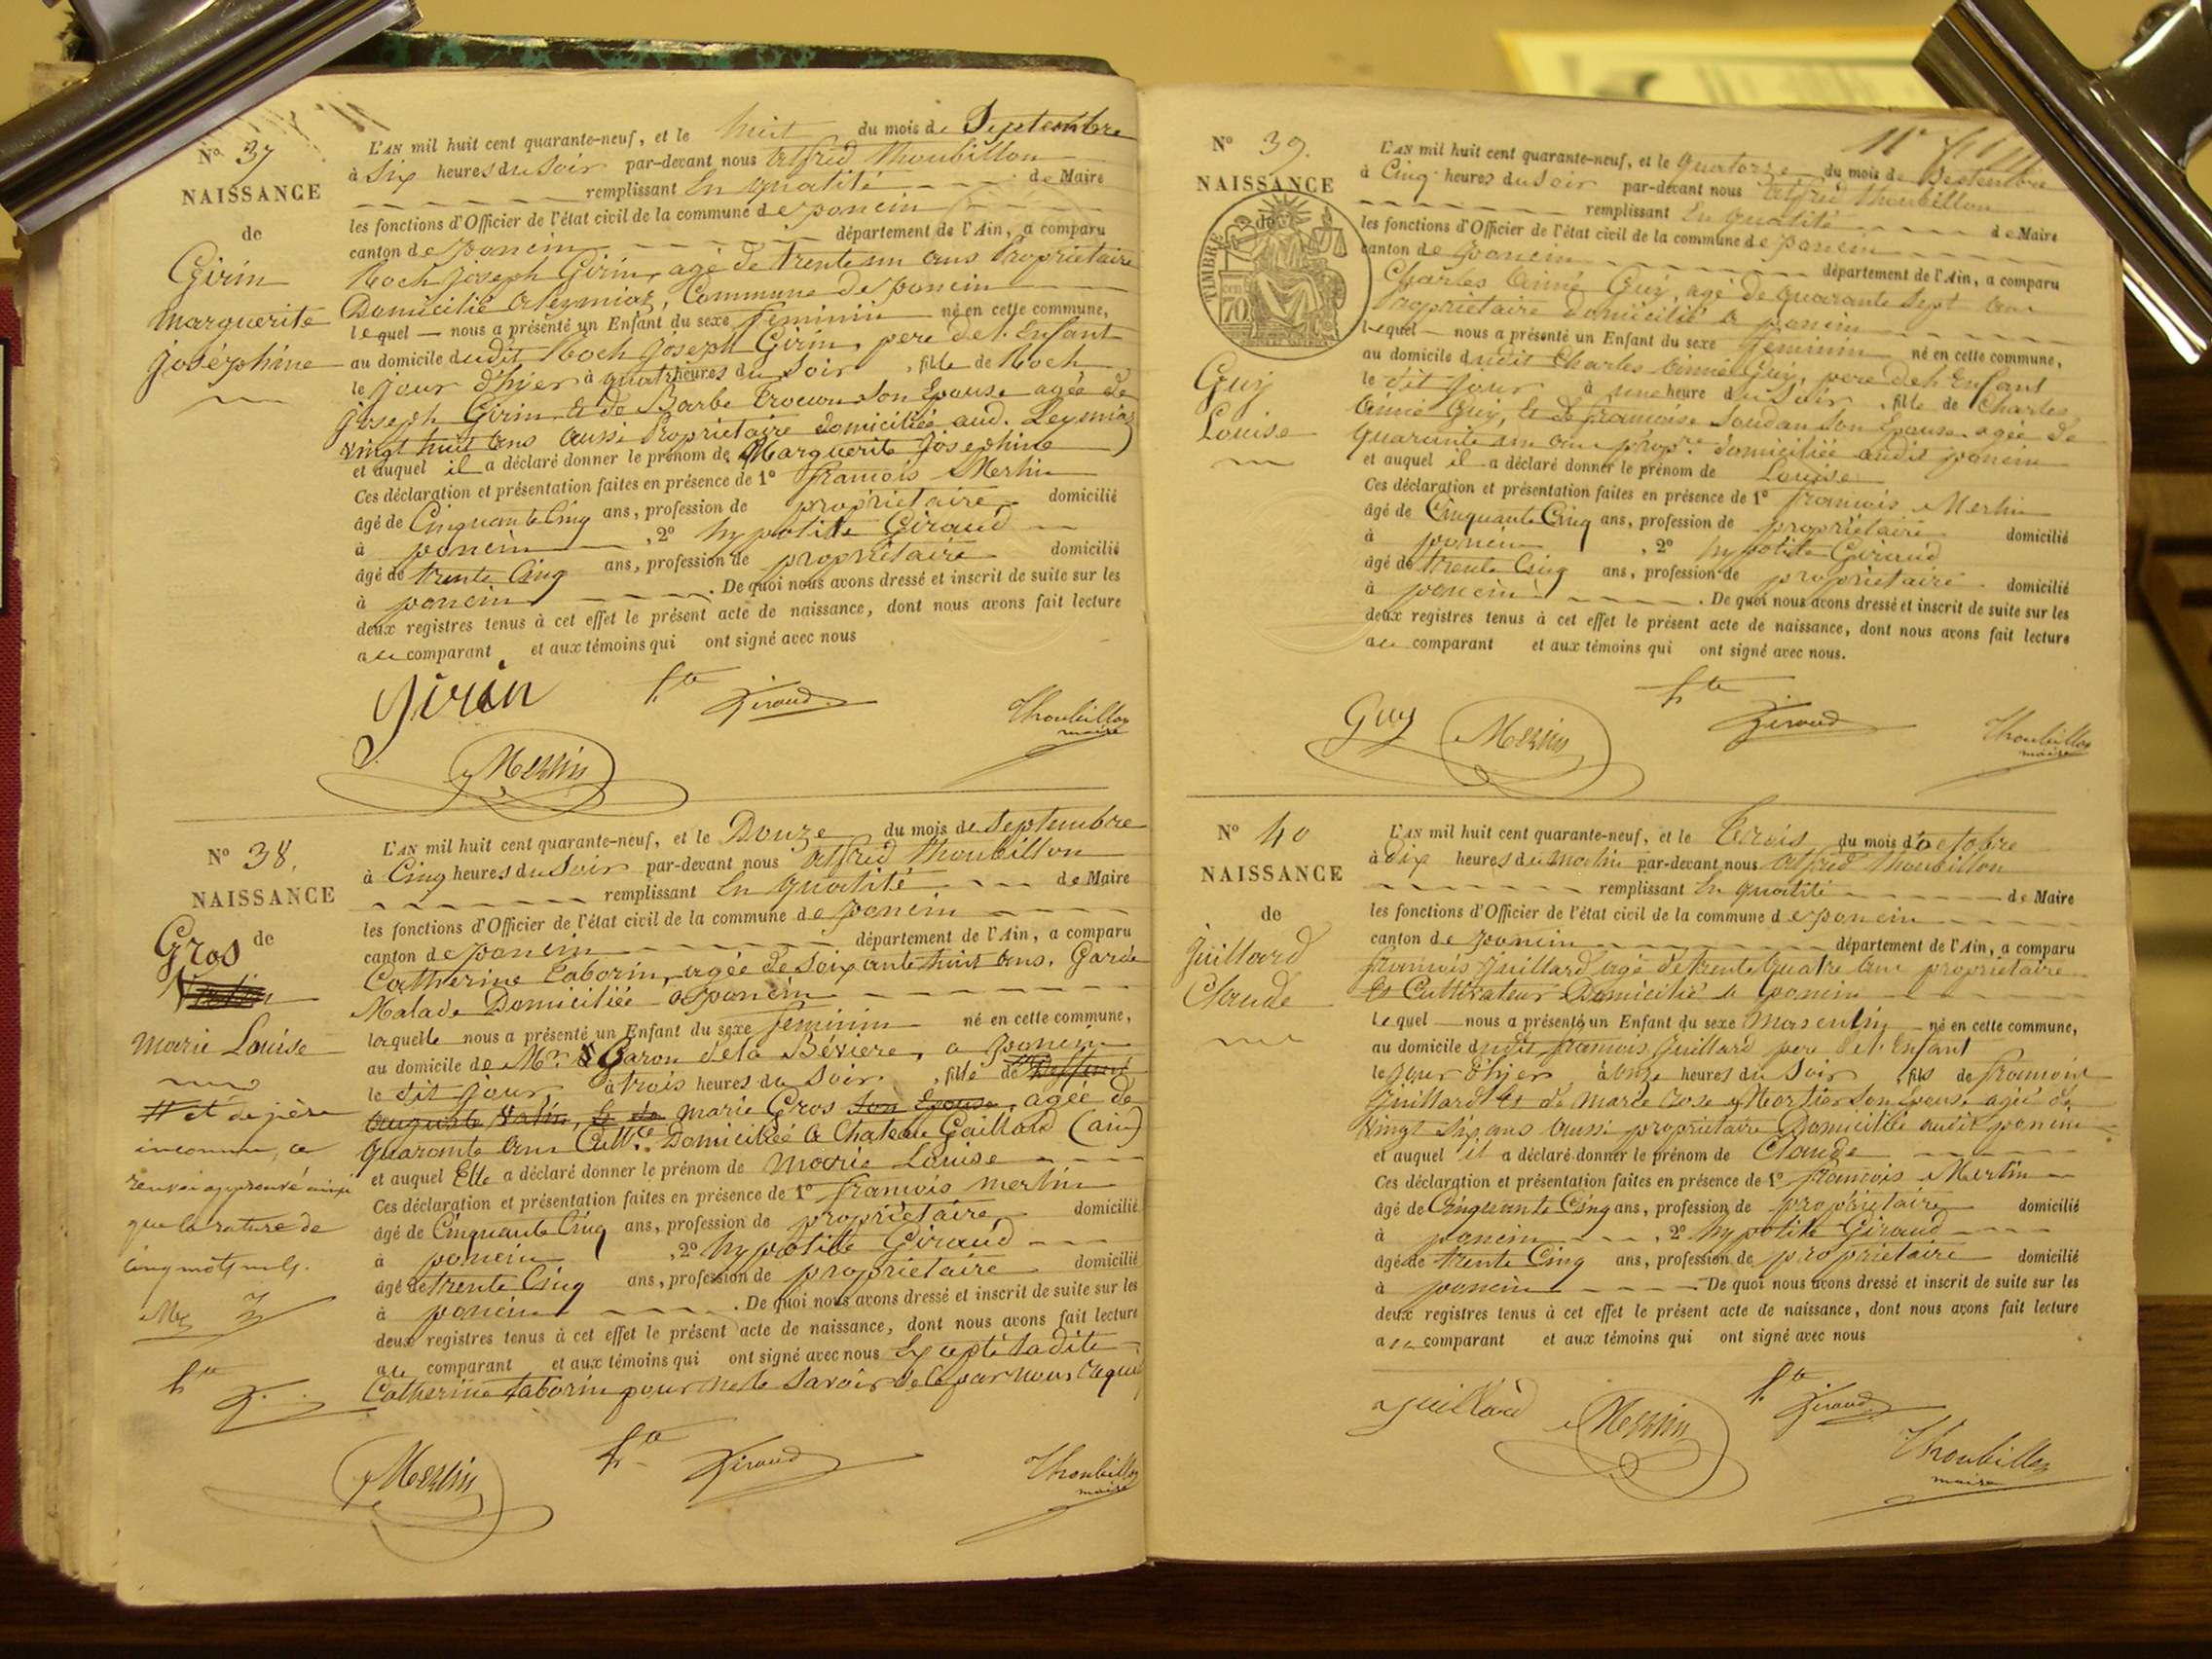 N° 37
NAISSANCE
de
Girin
Marguerite
Joséphine
L'AN mil huit cent quarante-neuf, et le huit du mois de Septembre
à Six heures du Soir par-devant nous Alfred Thoubillon
remplissant En qualité de Maire
les fonctions d'Officier de l'état civil de la commune de poncin
canton de poncin département de l'Ain, a comparu
Roch Joseph Girin, agé de trente un ans Propriétaire
Domicilié a Leymiaz, Commune de poncin
lequel nous a présenté un Enfant du sexe féminin né en cette commune,
au domicile dudit Roch Joseph Girin, pere de l'Enfant
le jour d'hier à quatre heures du Soir, fille de Roch
Joseph Girin et de Barbe son Epouse agée de
vingt huit ans aussi Propriétaire domiciliée aud. Leymiaz
et auquel il a déclaré donner le prénom de Marguerite Joséphine
Ces déclaration et présentation faites en présence de 1° françois Merlin
âgé de Cinquante Cinq ans, profession de propriétaire domicilié
à poncin, 2° hypolite Giraud
âgé de trente Cinq ans, profession de propriétaire domicilié
à poncin. De quoi nous avons dressé et inscrit de suite sur les
deux registres tenus à cet effet le présent acte de naissance, dont nous avons fait lecture
au comparant et aux témoins qui ont signé avec nous
Girin hte Giraud Thoubillon
maire
Merlin
N° 38.
NAISSANCE
de
Gros
Marie Louise
# et de père
inconnu, ce
renvoi approuvé ainsi
que la rature de
cinq mots nuls.
L'AN mil huit cent quarante-neuf, et le Douze du mois de Septembre
à Cinq heures du Soir par-devant nous Alfred Thoubillon
remplissant En qualité de Maire
les fonctions d'Officier de l'état civil de la commune de poncin
canton de poncin département de l'Ain, a comparu
Catherine Taborin, agée de Soixante huit ans, Garde
Malade Domiciliée a poncin
laquelle nous a présenté un Enfant du sexe féminin né en cette commune,
au domicile de Mr Baron de la Bévière, a poncin
le dit jour à trois heures du Soir, fille de
Auguste Vatin, et de Marie Gros son Epouse, agée de
quarante ans Cultce Domiciliée a Chateau Gaillard (ain)
et auquel Elle a déclaré donner le prénom de Marie Louise
Ces déclaration et présentation faites en présence de 1° françois Merlin
âgé de Cinquante Cinq ans, profession de propriétaire domicilié
à poncin, 2° hypolite Giraud
âgé de trente Cinq ans, profession de propriétaire domicilié
à poncin. De quoi nous avons dressé et inscrit de suite sur les
deux registres tenus à cet effet le présent acte de naissance, dont nous avons fait lecture
au comparant et aux témoins qui ont signé avec nous Excepté ladite
Catherine Taborin pour ne le Savoir de ce par nous requi
Merlin hte Giraud Thoubillon
maire
N° 39.
NAISSANCE
de
TIMBRE
70
Guy
Louise
L'AN mil huit cent quarante-neuf, et le quatorze du mois de Septembre
à Cinq heures du Soir par-devant nous Alfred Thoubillon
remplissant En qualité de Maire
les fonctions d'Officier de l'état civil de la commune de poncin
canton de poncin département de l'Ain, a comparu
Charles Aimé Guy, agé de quarante Sept ans
Propriétaire domicilié a poncin
lequel nous a présenté un Enfant du sexe féminin né en cette commune,
au domicile dudit Charles Aimé Guy, pere de l'Enfant
le dit jour à une heure du Soir, fille de Charles
Aimé Guy, et de françoise Soudan son Epouse agée de
quarante un ans propre domiciliée audit poncin
et auquel il a déclaré donner le prénom de Louise
Ces déclaration et présentation faites en présence de 1° françois Merlin
âgé de Cinquante Cinq ans, profession de propriétaire domicilié
à poncin, 2° hypolite Giraud
âgé de trente Cinq ans, profession de propriétaire domicilié
à poncin. De quoi nous avons dressé et inscrit de suite sur les
deux registres tenus à cet effet le présent acte de naissance, dont nous avons fait lecture
au comparant et aux témoins qui ont signé avec nous.
Guy Merlin hte Giraud Thoubillon
maire
N° 40
NAISSANCE
de
Juillard
Claude
L'AN mil huit cent quarante-neuf, et le trois du mois d'octobre
à dix heures du matin par-devant nous Alfred Thoubillon
remplissant En qualité de Maire
les fonctions d'Officier de l'état civil de la commune de poncin
canton de poncin département de l'Ain, a comparu
françois Juillard agé de trente quatre ans propriétaire
et Cultivateur Domicilié a poncin
lequel nous a présenté un Enfant du sexe Masculin né en cette commune,
au domicile dudit françois Juillard pere de l'Enfant
le jour d'hier à onze heures du Soir, fils de françois
Juillard et de Marie Rose Mortier son Epouse agée de
vingt Six ans aussi propriétaire Domiciliée audit poncin
et auquel il a déclaré donner le prénom de Claude
Ces déclaration et présentation faites en présence de 1° françois Merlin
âgé de Cinquante Cinq ans, profession de propriétaire domicilié
à poncin, 2° hypolite Giraud
âgé de trente Cinq ans, profession de propriétaire domicilié
à poncin De quoi nous avons dressé et inscrit de suite sur les
deux registres tenus à cet effet le présent acte de naissance, dont nous avons fait lecture
au comparant et aux témoins qui ont signé avec nous
Juillard Merlin hte Giraud
Thoubillon
maire